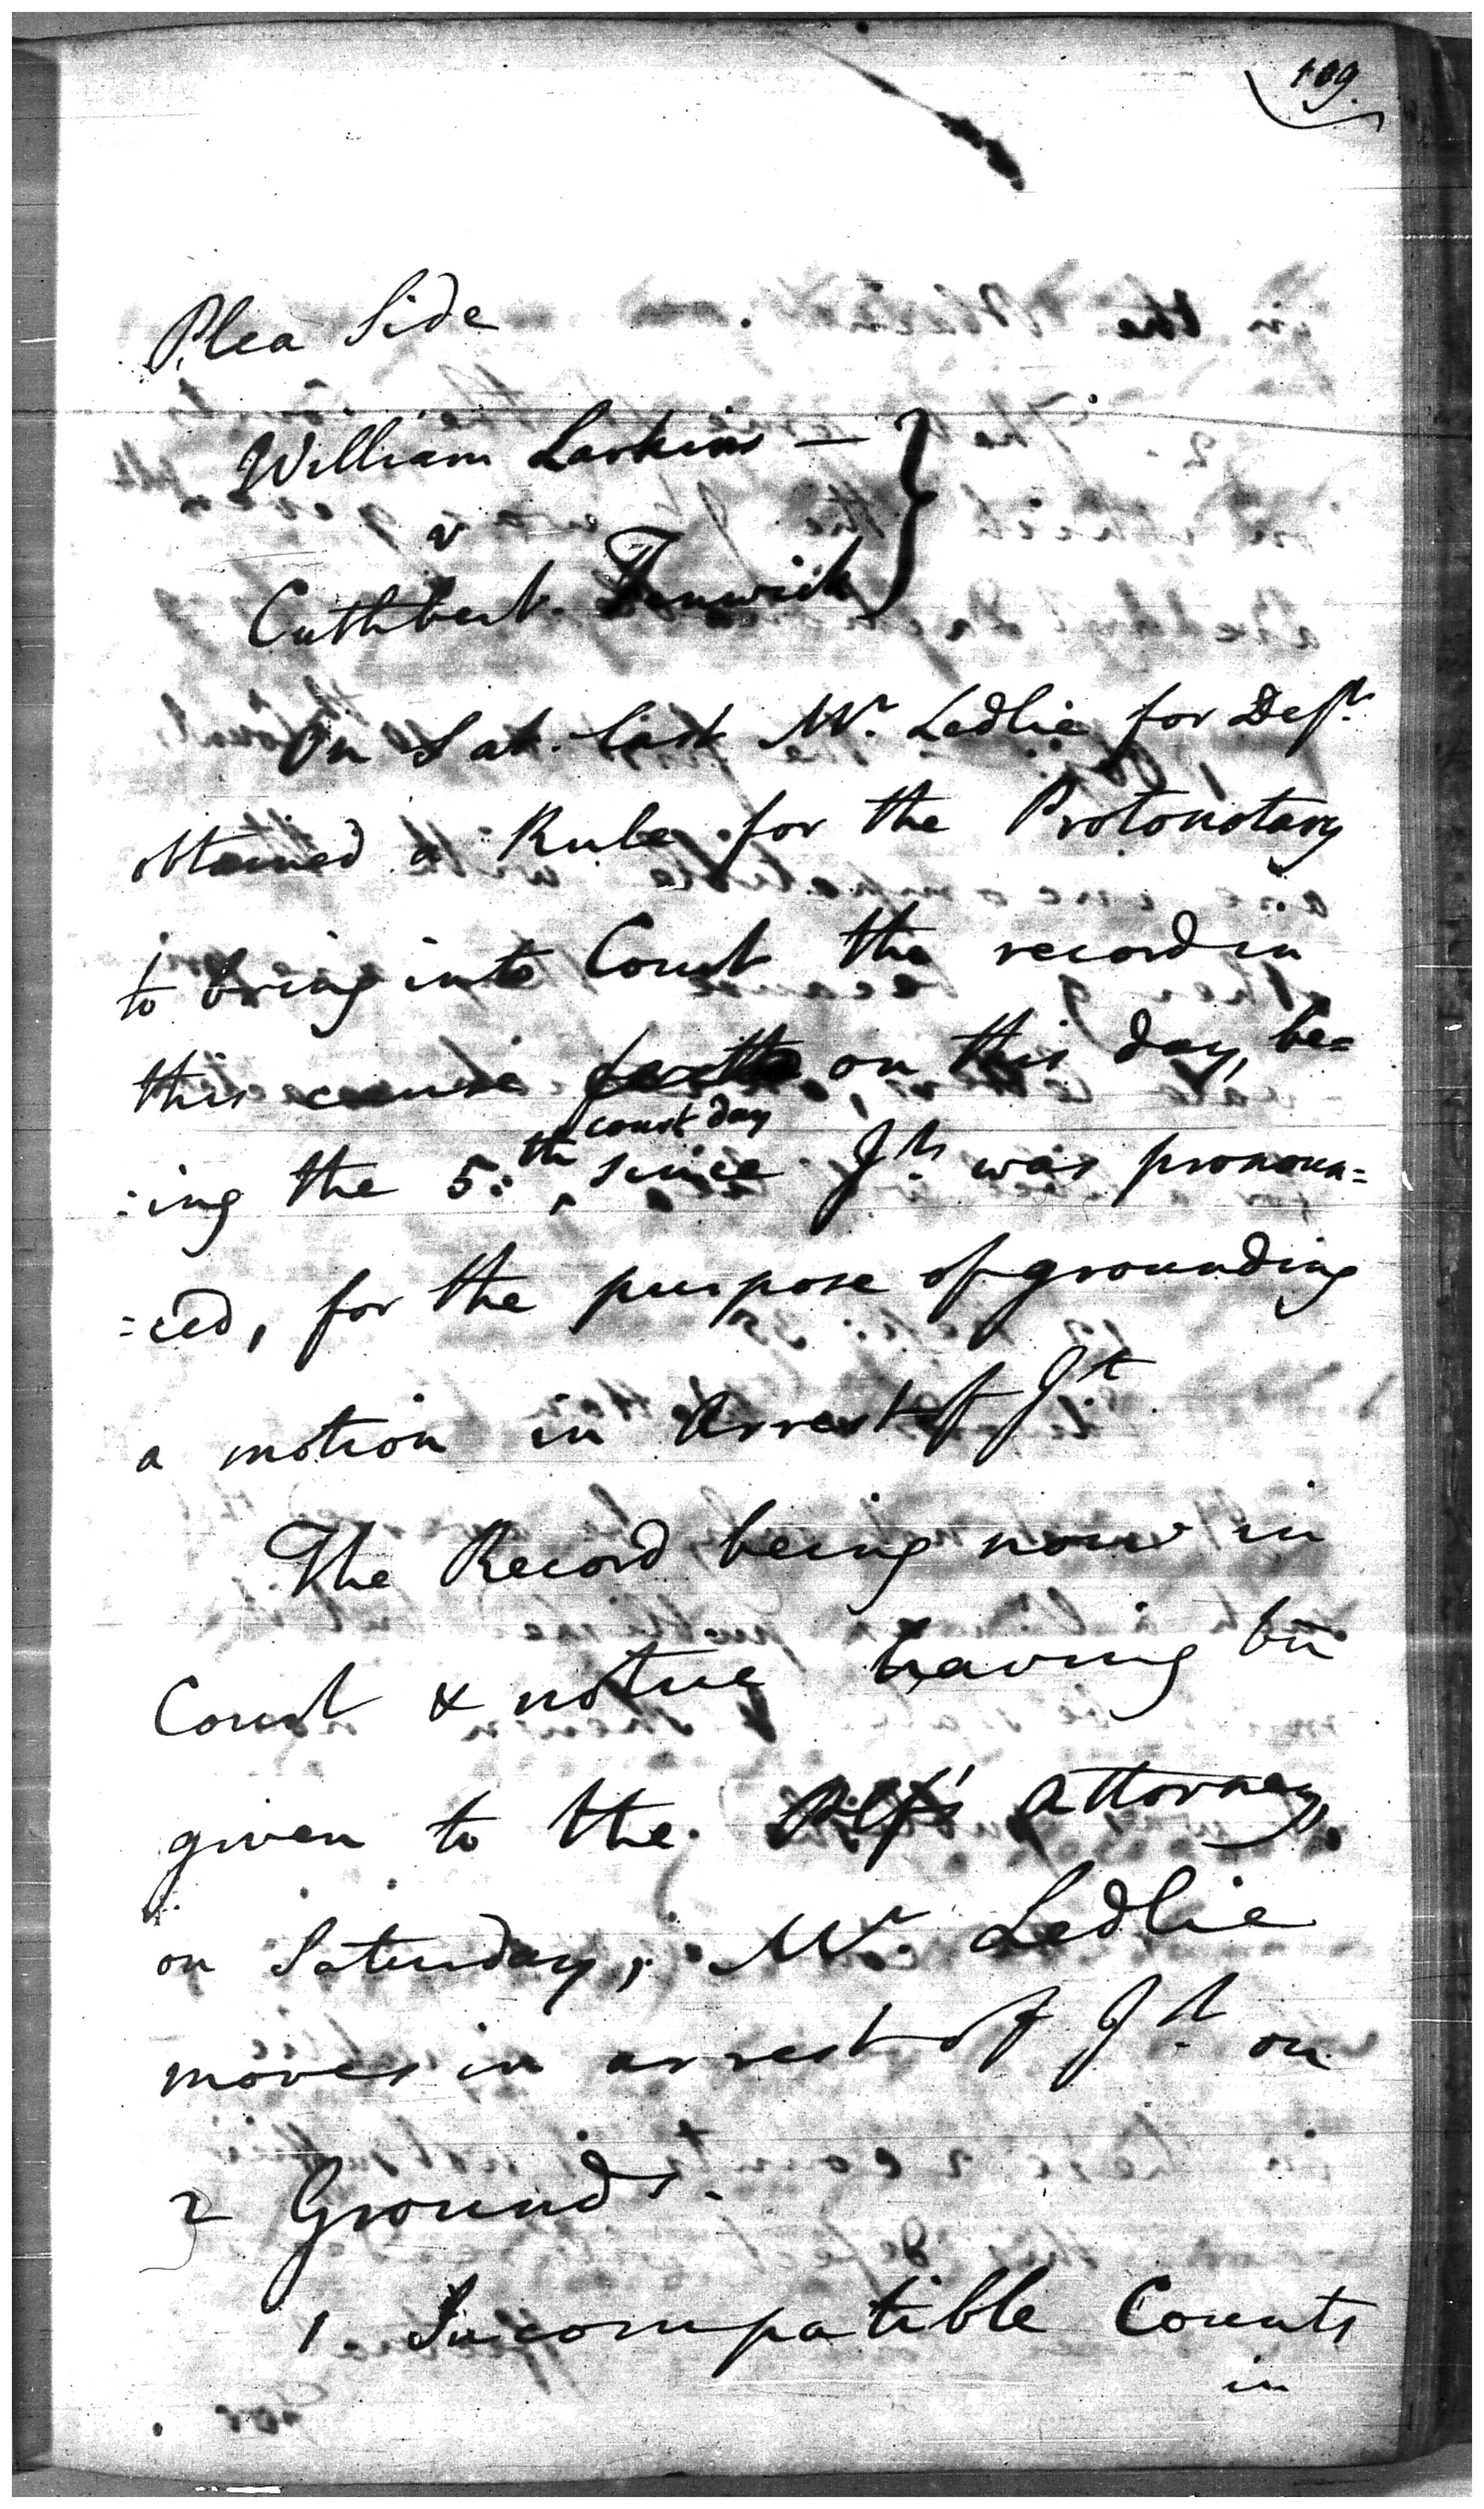 109.
Plea Side
William Larkins —
v
Cuthbert Fenwick
On Sat. last Mr. Ledlie for Deft.
obtained a Rule for the Protonotary
to bring into Court the record in
this cause on this day, be=
:ing the 5:th court day since Jt. was pronoun=
=ced, for the purpose of grounding
a motion in arrest of Jt
The Record being now in
Court & notice having bn
given to the Plfs' attorney,
on Saturday, Mr. Ledlie
moves in arrest of Jt. on
2 Grounds.
1. Incompatible Counts
in